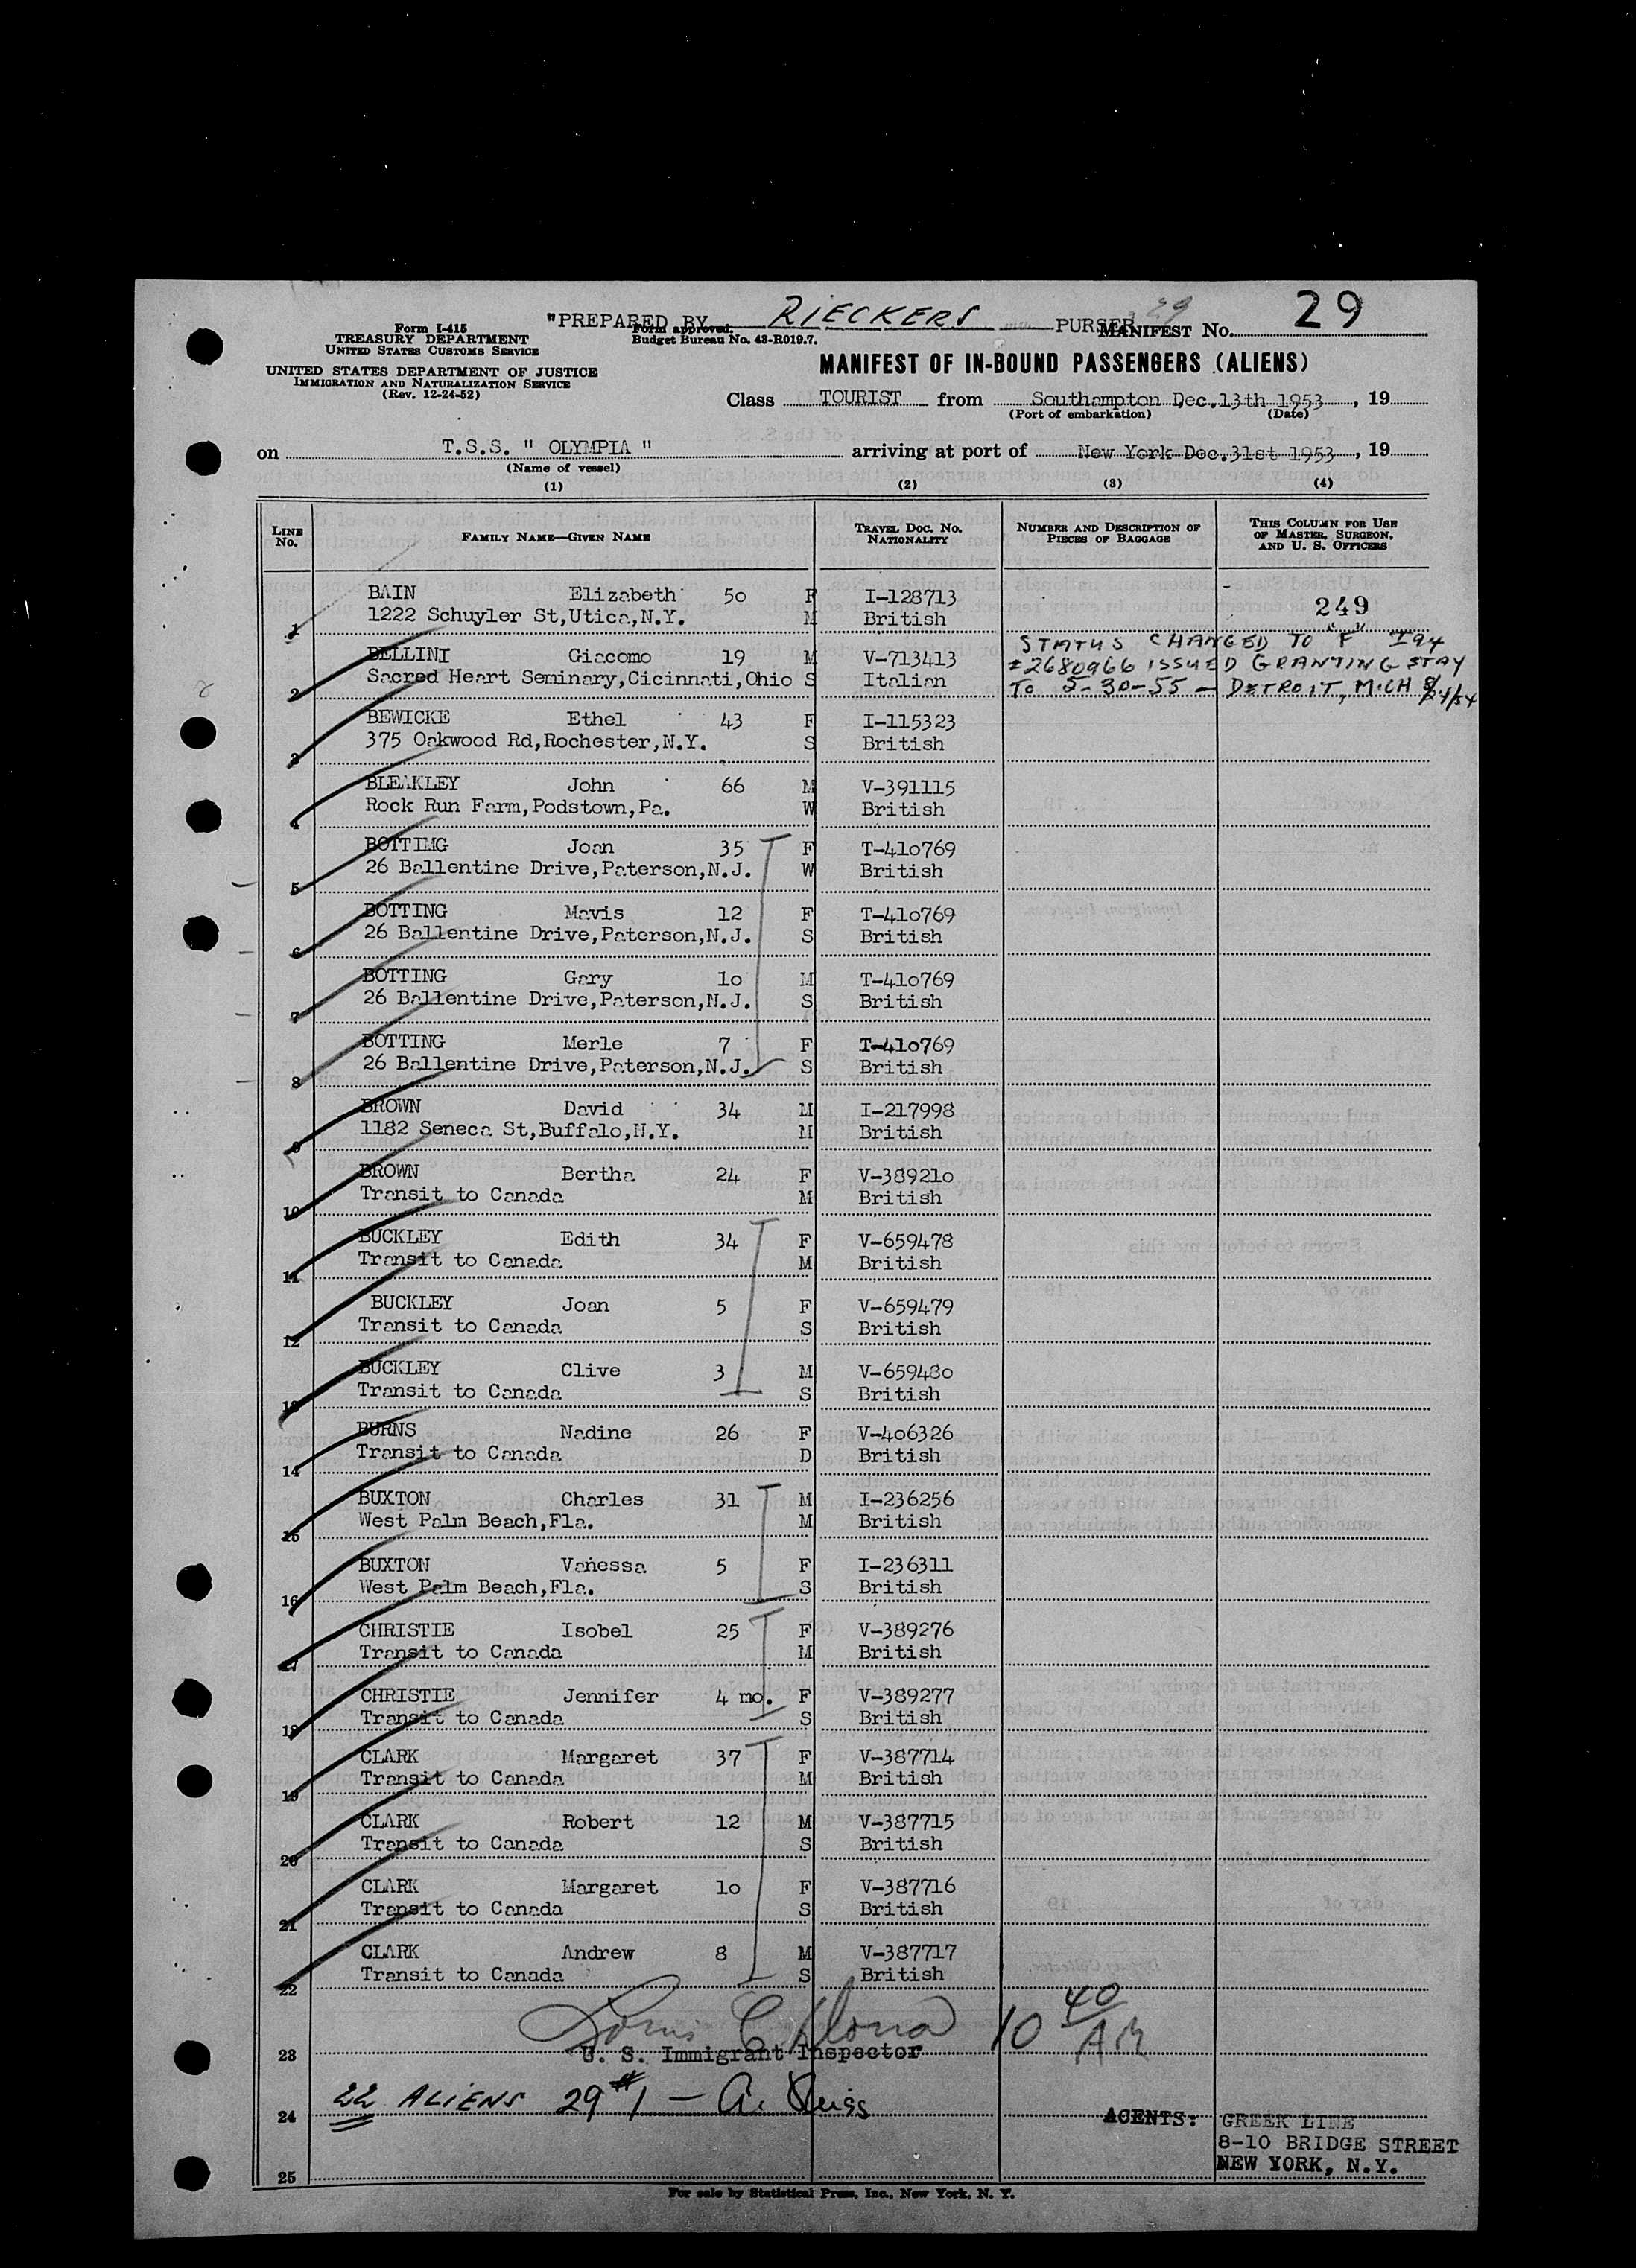 "PREPARED BY RIECKERS PURSER
29
Form I-415
TREASURY DEPARTMENT
UNITED STATES CUSTOMS SERVICE
UNITED STATES DEPARTMENT OF JUSTICE
IMMIGRATION AND NATURALIZATION SERVICE
(Rev. 12-24-52)
Form approved.
Budget Bureau No. 43-R019.7.
MANIFEST No. 29
MANIFEST OF IN-BOUND PASSENGERS (ALIENS)
Class TOURIST from Southampton Dec.13th 1953, 19
(Port of embarkation) (Date)
on T.S.S. " OLYMPIA " arriving at port of New York Dec.31st 1953, 19
(Name of vessel)
(1) (2) (3) (4)
LINE No. FAMILY NAME—GIVEN NAME TRAVEL DOC. No. NATIONALITY NUMBER AND DESCRIPTION OF PIECES OF BAGGAGE THIS COLUMN FOR USE OF MASTER, SURGEON, AND U. S. OFFICERS
BAIN Elizabeth 50 F I-128713
249
1 1222 Schuyler St,Utica,N.Y. M British
STATUS CHANGED TO "F" I94
BELLINI Giacomo 19 M V-713413
#2680966 ISSUED GRANTING STAY
2 Sacred Heart Seminary,Cicinnati,Ohio S Italian
TO 5-30-55 — DETROIT, MICH 8/24/54
BEWICKE Ethel 43 F I-115323
3 375 Oakwood Rd,Rochester,N.Y. S British
BLEAKLEY John 66 M V-391115
4 Rock Run Farm,Podstown,Pa. W British
BOTTING Joan 35 F T-410769
5 26 Ballentine Drive,Paterson,N.J. W British
BOTTING Mavis 12 F T-410769
6 26 Ballentine Drive,Paterson,N.J. S British
BOTTING Gary 10 M T-410769
7 26 Ballentine Drive,Paterson,N.J. S British
BOTTING Merle 7 F T-410769
8 26 Ballentine Drive,Paterson,N.J. S British
BROWN David 34 M I-217998
9 1182 Seneca St,Buffalo,N.Y. M British
BROWN Bertha 24 F V-389210
10 Transit to Canada M British
BUCKLEY Edith 34 F V-659478
11 Transit to Canada M British
BUCKLEY Joan 5 F V-659479
12 Transit to Canada S British
BUCKLEY Clive 3 M V-659480
13 Transit to Canada S British
BURNS Nadine 26 F V-406326
14 Transit to Canada D British
BUXTON Charles 31 M I-236256
15 West Palm Beach,Fla. M British
BUXTON Vanessa 5 F I-236311
16 West Palm Beach,Fla. S British
CHRISTIE Isobel 25 F V-389276
17 Transit to Canada M British
CHRISTIE Jennifer 4 mo. F V-389277
18 Transit to Canada S British
CLARK Margaret 37 F V-387714
19 Transit to Canada M British
CLARK Robert 12 M V-387715
20 Transit to Canada S British
CLARK Margaret 10 F V-387716
21 Transit to Canada S British
CLARK Andrew 8 M V-387717
22 Transit to Canada S British
10 40 AM
23 U. S. Immigrant Inspector
24 22 ALIENS 29 #1 — A. Reiss
AGENTS: GREEK LINE
8-10 BRIDGE STREET
25 NEW YORK, N.Y.
For sale by Statistical Press, Inc., New York, N. Y.